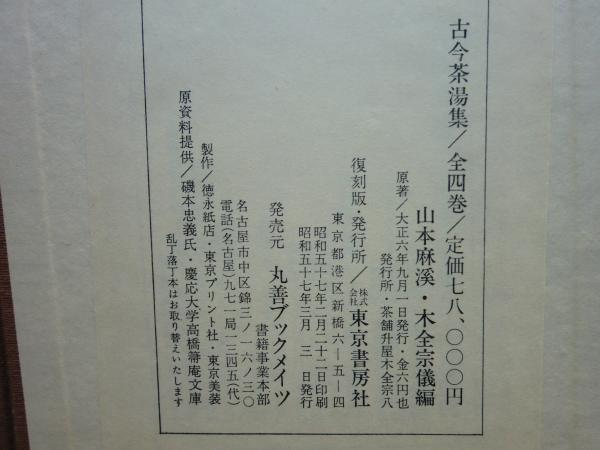 古今茶湯集/全四巻/定価七八、〇〇〇円
山本麻溪・木全宗儀編
原著/大正六年九月一日発行・金六円也
発行所・茶舗升屋木全宗八
復刻版・発行所/株式会社東京書房社
東京都港区新橋六ー五ー四
昭和五十七年二月二十二日印刷
昭和五十七年三月 三 日発行
発売元 丸善ブックメイツ
書籍事業本部
名古屋市中区錦三ノ一六ノ三〇
電話(名古屋)九七一局一三四五(代)
製作/徳永紙店・東京プリント社・東京美装
原資料提供/磯本忠義氏・慶応大学高橋箒庵文庫
乱丁落丁本はお取り替えいたします